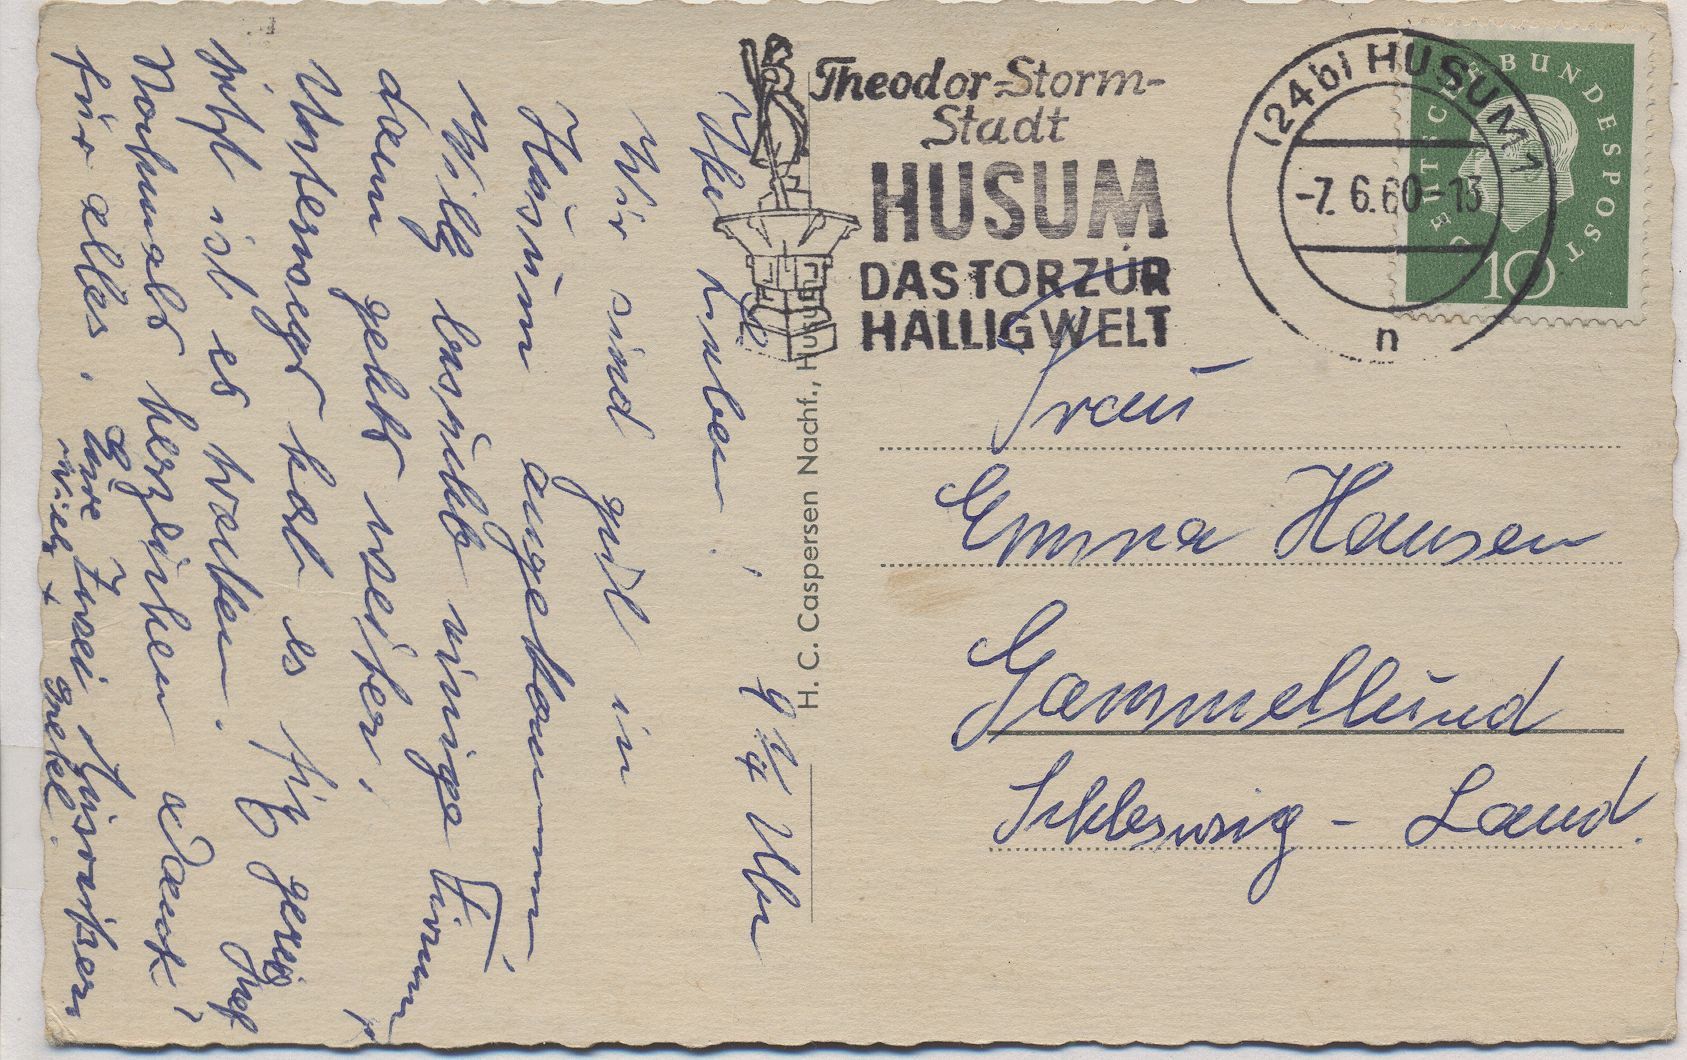 Ihr Lieben! 9 3/4 Uhr
Wir sind gut in
Husum angekommen
Willy besucht einige Firmen,
dann geht's weiter.
Unterwegs hat es gegossen
jetzt ist es trocken.
Nochmals herzlichen Dank!
für alles. Eure Zwei
Willy + Gretel.
Theodor-Storm-
Stadt
HUSUM
DAS TOR ZUR
HALLIGWELT
(24b) HUSUM 1
-7.6.60-13
n
DEUTSCHE BUNDESPOST
10
H. C. Caspersen Nachf., Husum
Frau
Emma Hansen
Gammellund
Schleswig - Land.